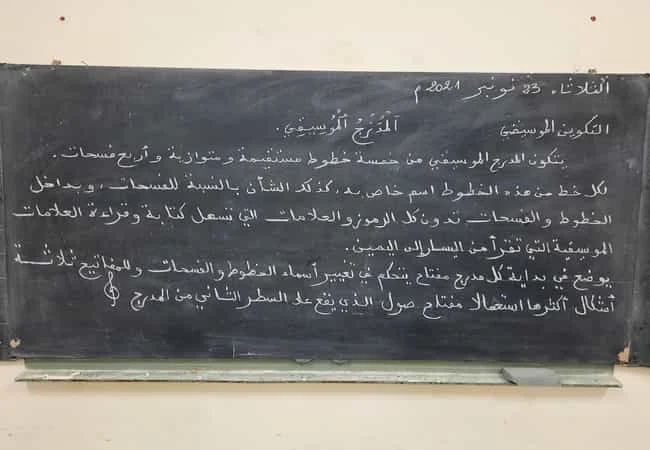 الثلاثاء 23 نونبر 2021 م
التكوين الموسيقي المدرج الموسيقي.
يتكون المدرج الموسيقي من خمسة خطوط مستقيمة ومتوازية وأربع فسحات.
لكل خط من هذه الخطوط اسم خاص به، كذلك الشأن بالنسبة للفسحات، وبداخل
الخطوط والفسحات تدون كل الرموز والعلامات التي تسهل كتابة وقراءة العلامات
الموسيقية التي تقرأ من اليسار إلى اليمين.
يوضع في بداية كل مدرج مفتاح يتحكم في تغيير أسماء الخطوط والفسحات وللمفاتيح ثلاثة
أشكال أكثرها استعمالا مفتاح صول الذي يقع على السطر الثاني من المدرج